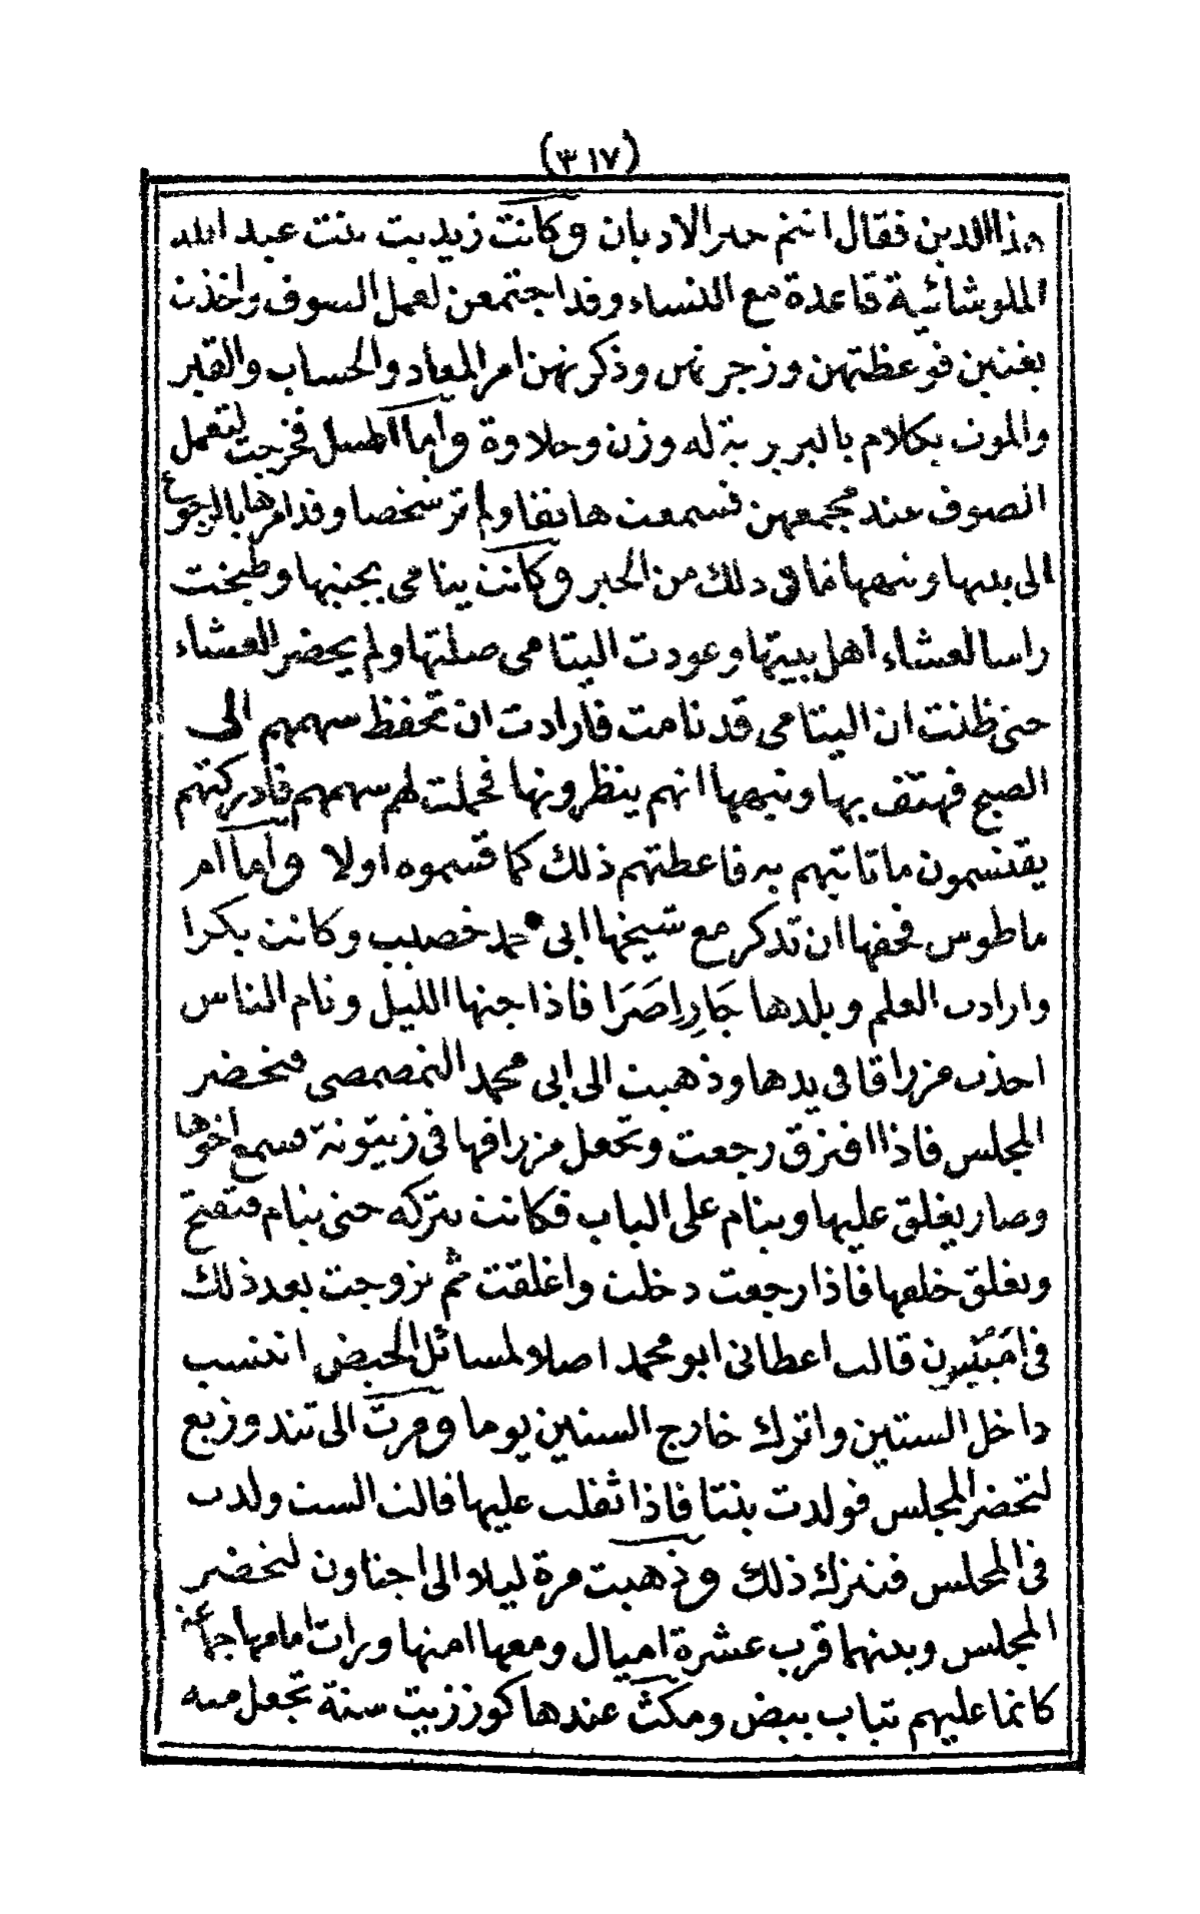 (٣١٧)
هذا الدين فقال انتم خير الاديان وكانت زيديت بنت عبد الله
الملوشائية قاعدة مع النساء وقد اجتمعن لعمل الصوف واخذن
يغنين فوعظتهن وزجرتهن وذكرتهن امر المعاد والحساب والقبر
والموت بكلام بالبربرية له وزن وحلاوة واما فخرجت لتعمل
الصوف عند مجمعهن فسمعت هاتفا ولم تر شخصا وقد امرها بالرجوع
الى بيتها ونبهها لما في ذلك من الخير وكانت يتامى بجنبها وطبخت
راسا لعشاء اهل بيتها وعودت اليتامى صلتها ولم يحضر العشاء
حتى ظنت ان اليتامى قد نامت فارادت ان تحفظ سهمهم الى
الصبح فهتف بها ونبهها انهم ينظرونها فحملت لهم سهمهم فادركتهم
يقتسمون ما تاتيهم به فاعطتهم ذلك كما قسموه اولا واما ام
ماطوس فحفها ان تذكر مع شيخها ابي محمد خصيب وكانت بكرا
وارادت العلم وبلدها جَارِاصَرَا فاذا جنها الليل ونام الناس
اخذت مزراقا في يدها وذهبت الى ابي محمد التمصمصي فتحضر
المجلس فاذا افترق رجعت وتجعل مزراقها في زيتونة فسمع اخوها
وصار يغلق عليها وينام على الباب فكانت تتركه حتى ينام فتفتح
وتغلق خلفها فاذا رجعت دخلت واغلقت ثم تزوجت بعد ذلك
في قالت اعطاني ابو محمد اصلا لمسائل الحيض انتسب
داخل الستين واترك خارج الستين يوما ومرت الى تندوزيع
لتحضر المجلس فولدت بنتا فاذا ثقلب عليها قالت الست ولدت
في المجلس فتترك ذلك وذهبت مرة ليلا الى اجناون لتحضر
المجلس وبينهما قرب عشرة اميال ومعها امنها ورات امامها جماعة
كانما عليهم ثياب بيض ومكث عندها كوز زيت سنة تجعل منه